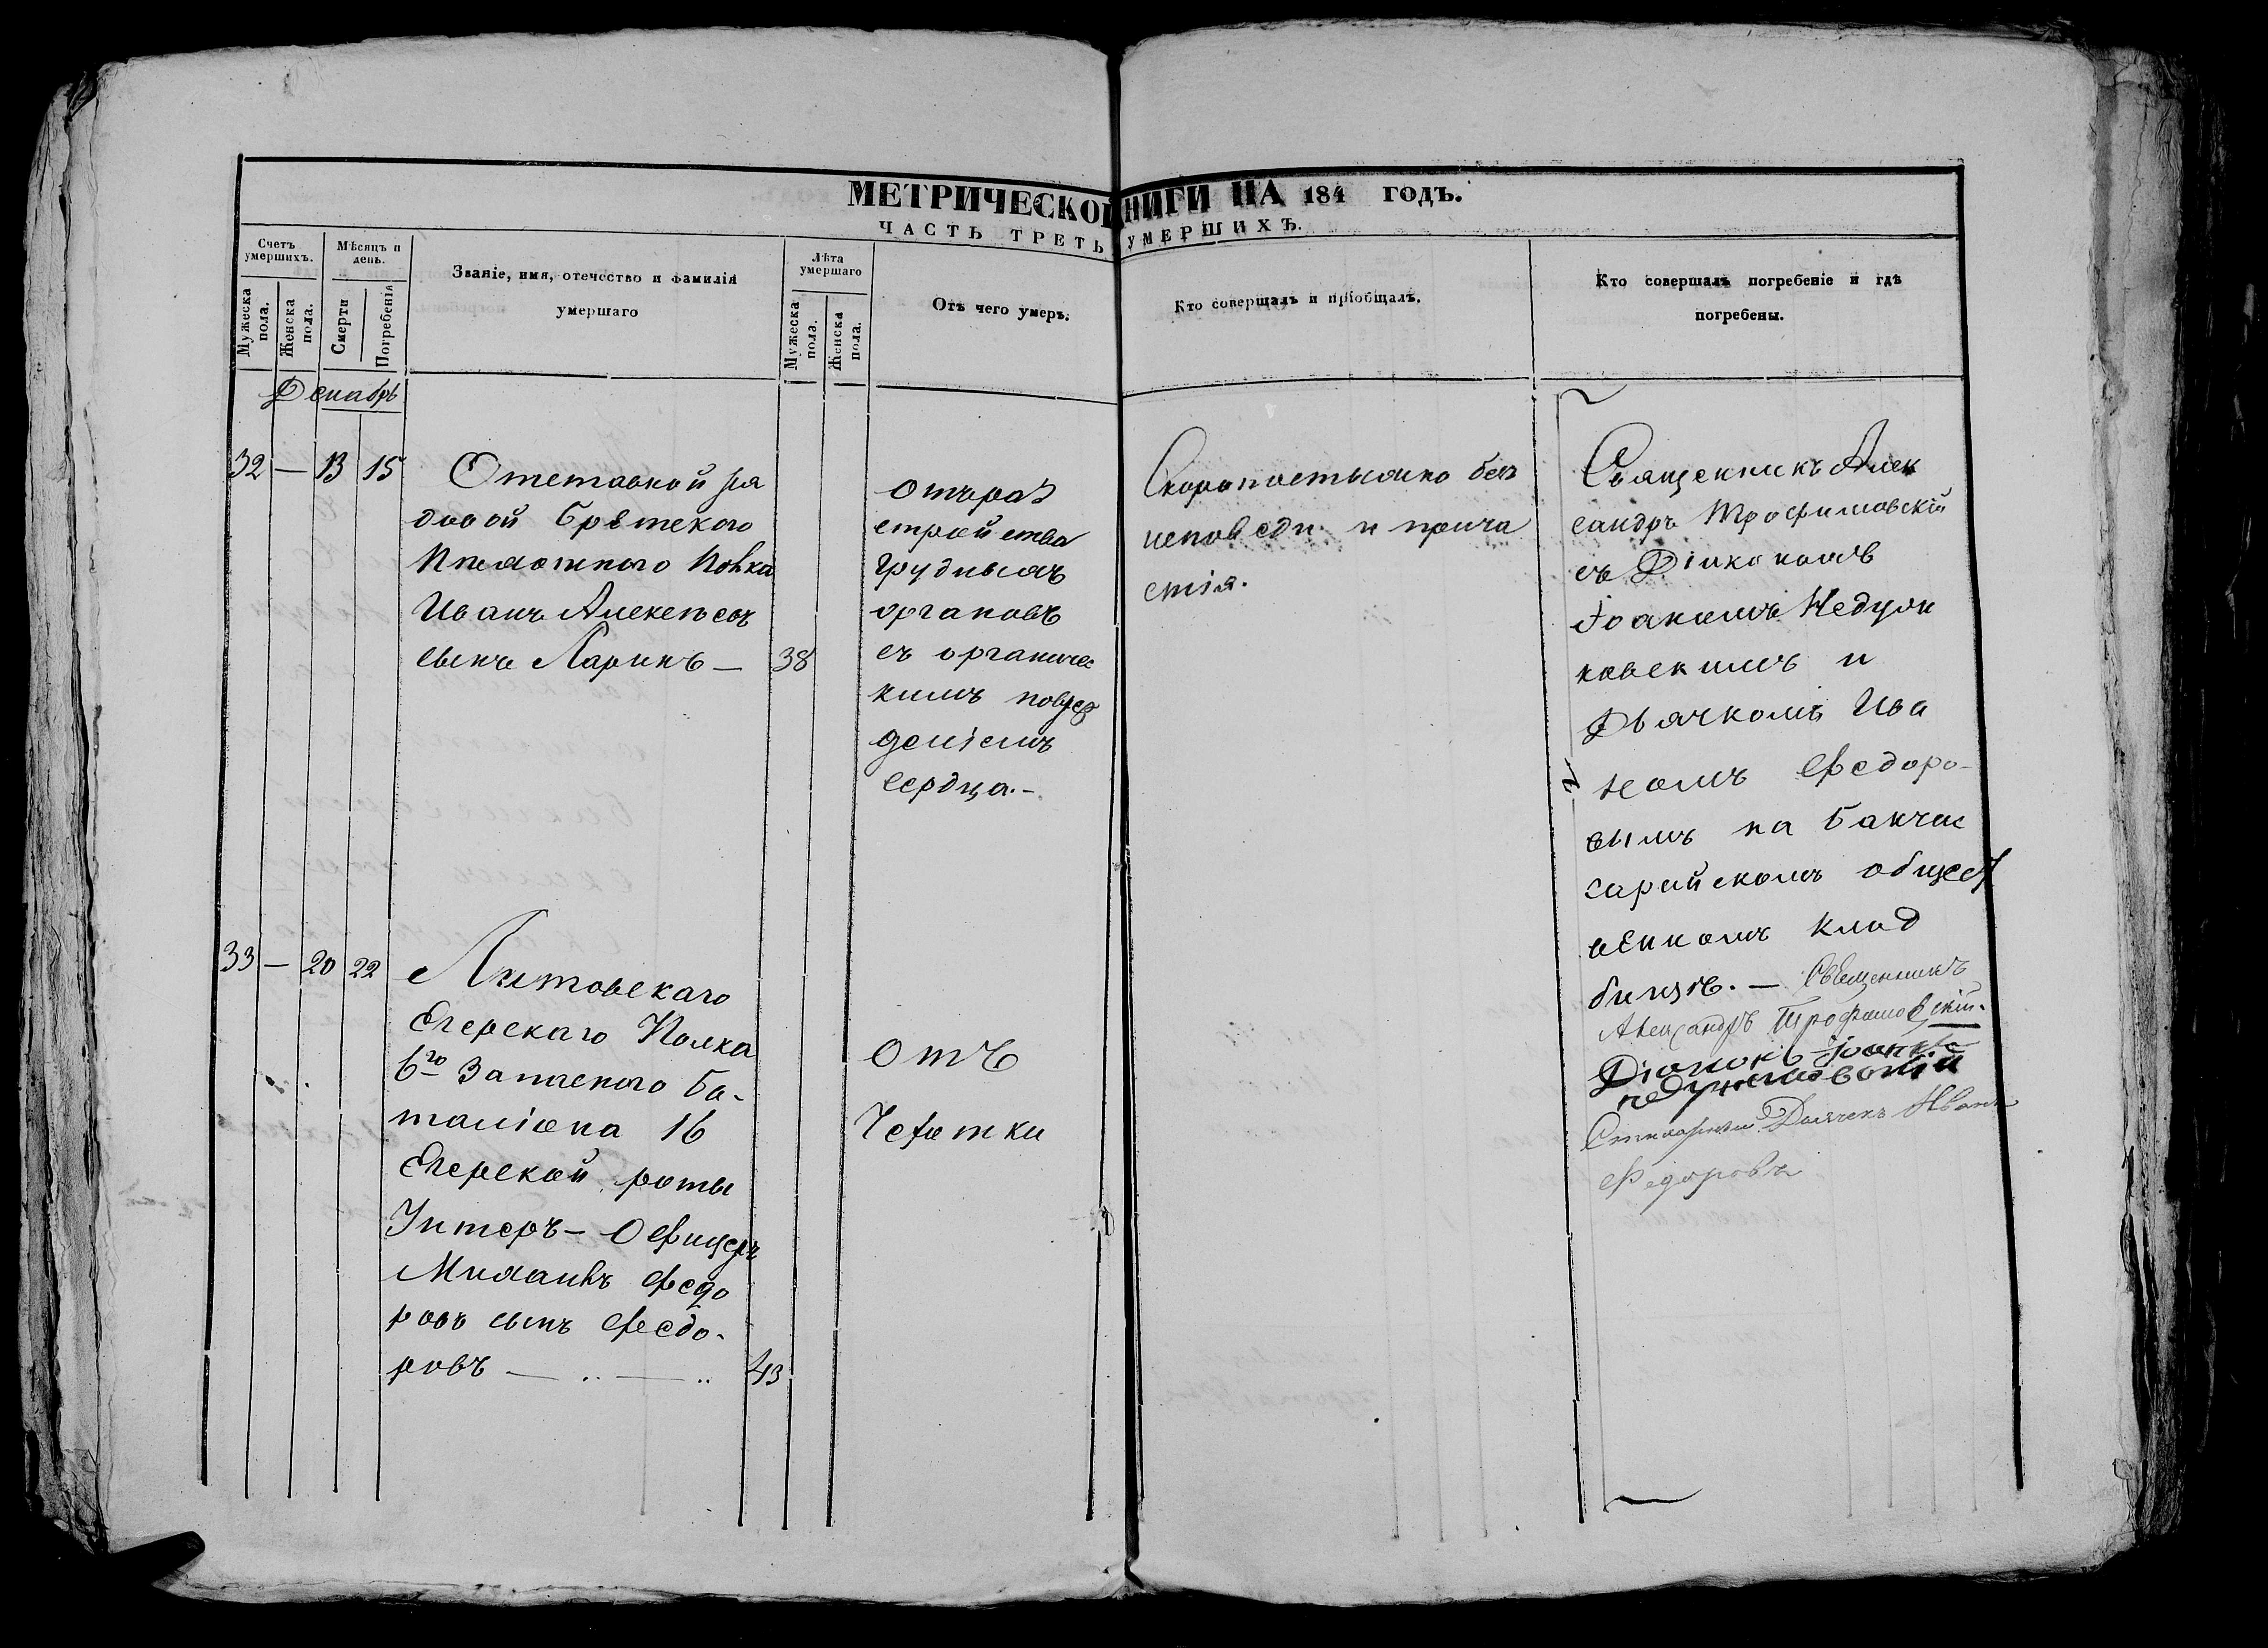 МЕТРИЧЕСКОЙ КНИГИ НА 184 ГОДЪ.
ЧАСТЬ ТРЕТЬ УМЕРШИХЪ.
Счетъ умершихъ.
Мужеска пола.
Женска пола.
Мѣсяцъ и день.
Смерти
Погребенія
Званіе, имя, отечество и фамилія
умершаго
Лѣта умершаго
Мужеска пола.
Женска пола.
Отъ чего умеръ.
Кто совершалъ и пріобщалъ.
Кто совершалъ погребеніе и гдѣ
погребены.
Декабрь
32 — 13 15
Отставной ря
довой Брѣстскаго
Пѣхотнаго Полка
Иванъ Алексѣевъ
сынъ Ларинъ — 38
отъ раз
стройства
грудныхъ
органовъ
съ органичес
кимъ повреж
деніемъ
сердца.—
Скоропостижно безъ
исповеди и прича
стія.
Священникъ Алек
сандръ Трофимовскій
съ Діакономъ
Іоакимомъ Недзѣл
ковскимъ и
Дьячкомъ Ива
номъ Федоро-
вымъ на Бакчис
сарайскомъ общест
венномъ клад
бищѣ. — Священникъ
Александръ Трофимовскій.
Діаконъ
Дьячекъ Иванъ
Федоровъ
33 — 20 22
Литовскаго
Егерскаго Полка
6го Запаснаго Ба-
таліона 16
Егерской роты
Унтеръ-Офицеръ
Михаилъ Федо
ровъ сынъ Федо-
ровъ — .. — .. 43
отъ
Чехотки